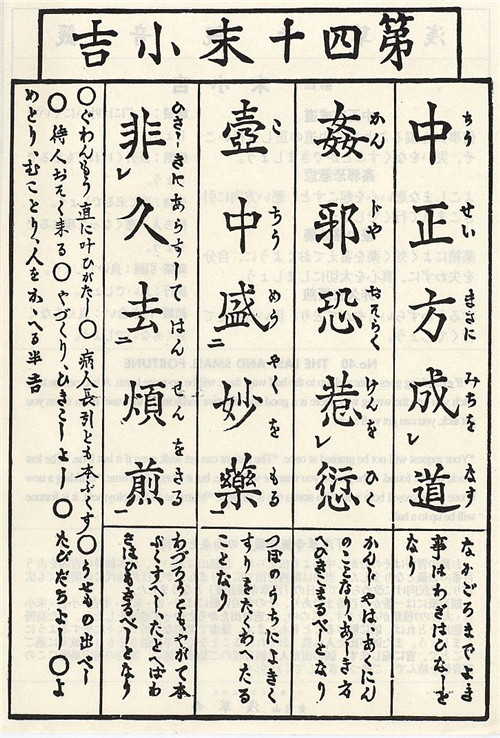 第四十末小吉
中正方成レ道
ちう せい まさに みちを なす
なかごろまでよき
事はわざはひなしと
なり
姦邪恐惹レ愆
かん じや おそらく けんを ひく
かんじやは、あくにん
のことなり、あしき方
壺中盛二妙薬
こ ちう めう やくを もる
つぼのうちによきく
すりをたくわへたる
ことなり
非レ久去二煩煎一
ひさしきにあらずしてはんせんをさる
わづらひことやがて本
ぶくすべし、たとへばわ
ざはひもさるべしとなり
○ぐわんもう直に叶ひがたし○病人長引とも本ぶくす○うせもの出べし
○待人おそく来る○やづくり、ひきこしよし○たびだちよし○よ
めとり、むことり、人をかゝへる半吉